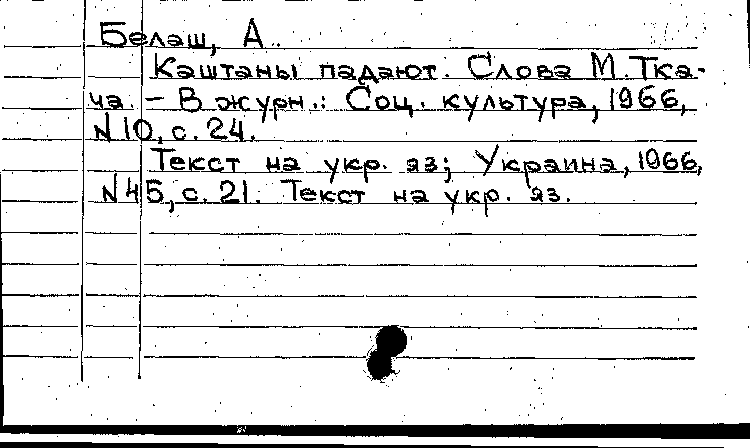 Белаш, А.
Каштаны падают. Слова М. Тка-
ча. – В журн.: Соц. культура, 1966,
N 10, с. 24.
Текст на укр. яз; Украина, 1966,
N 45, с. 21. Текст на укр. яз.